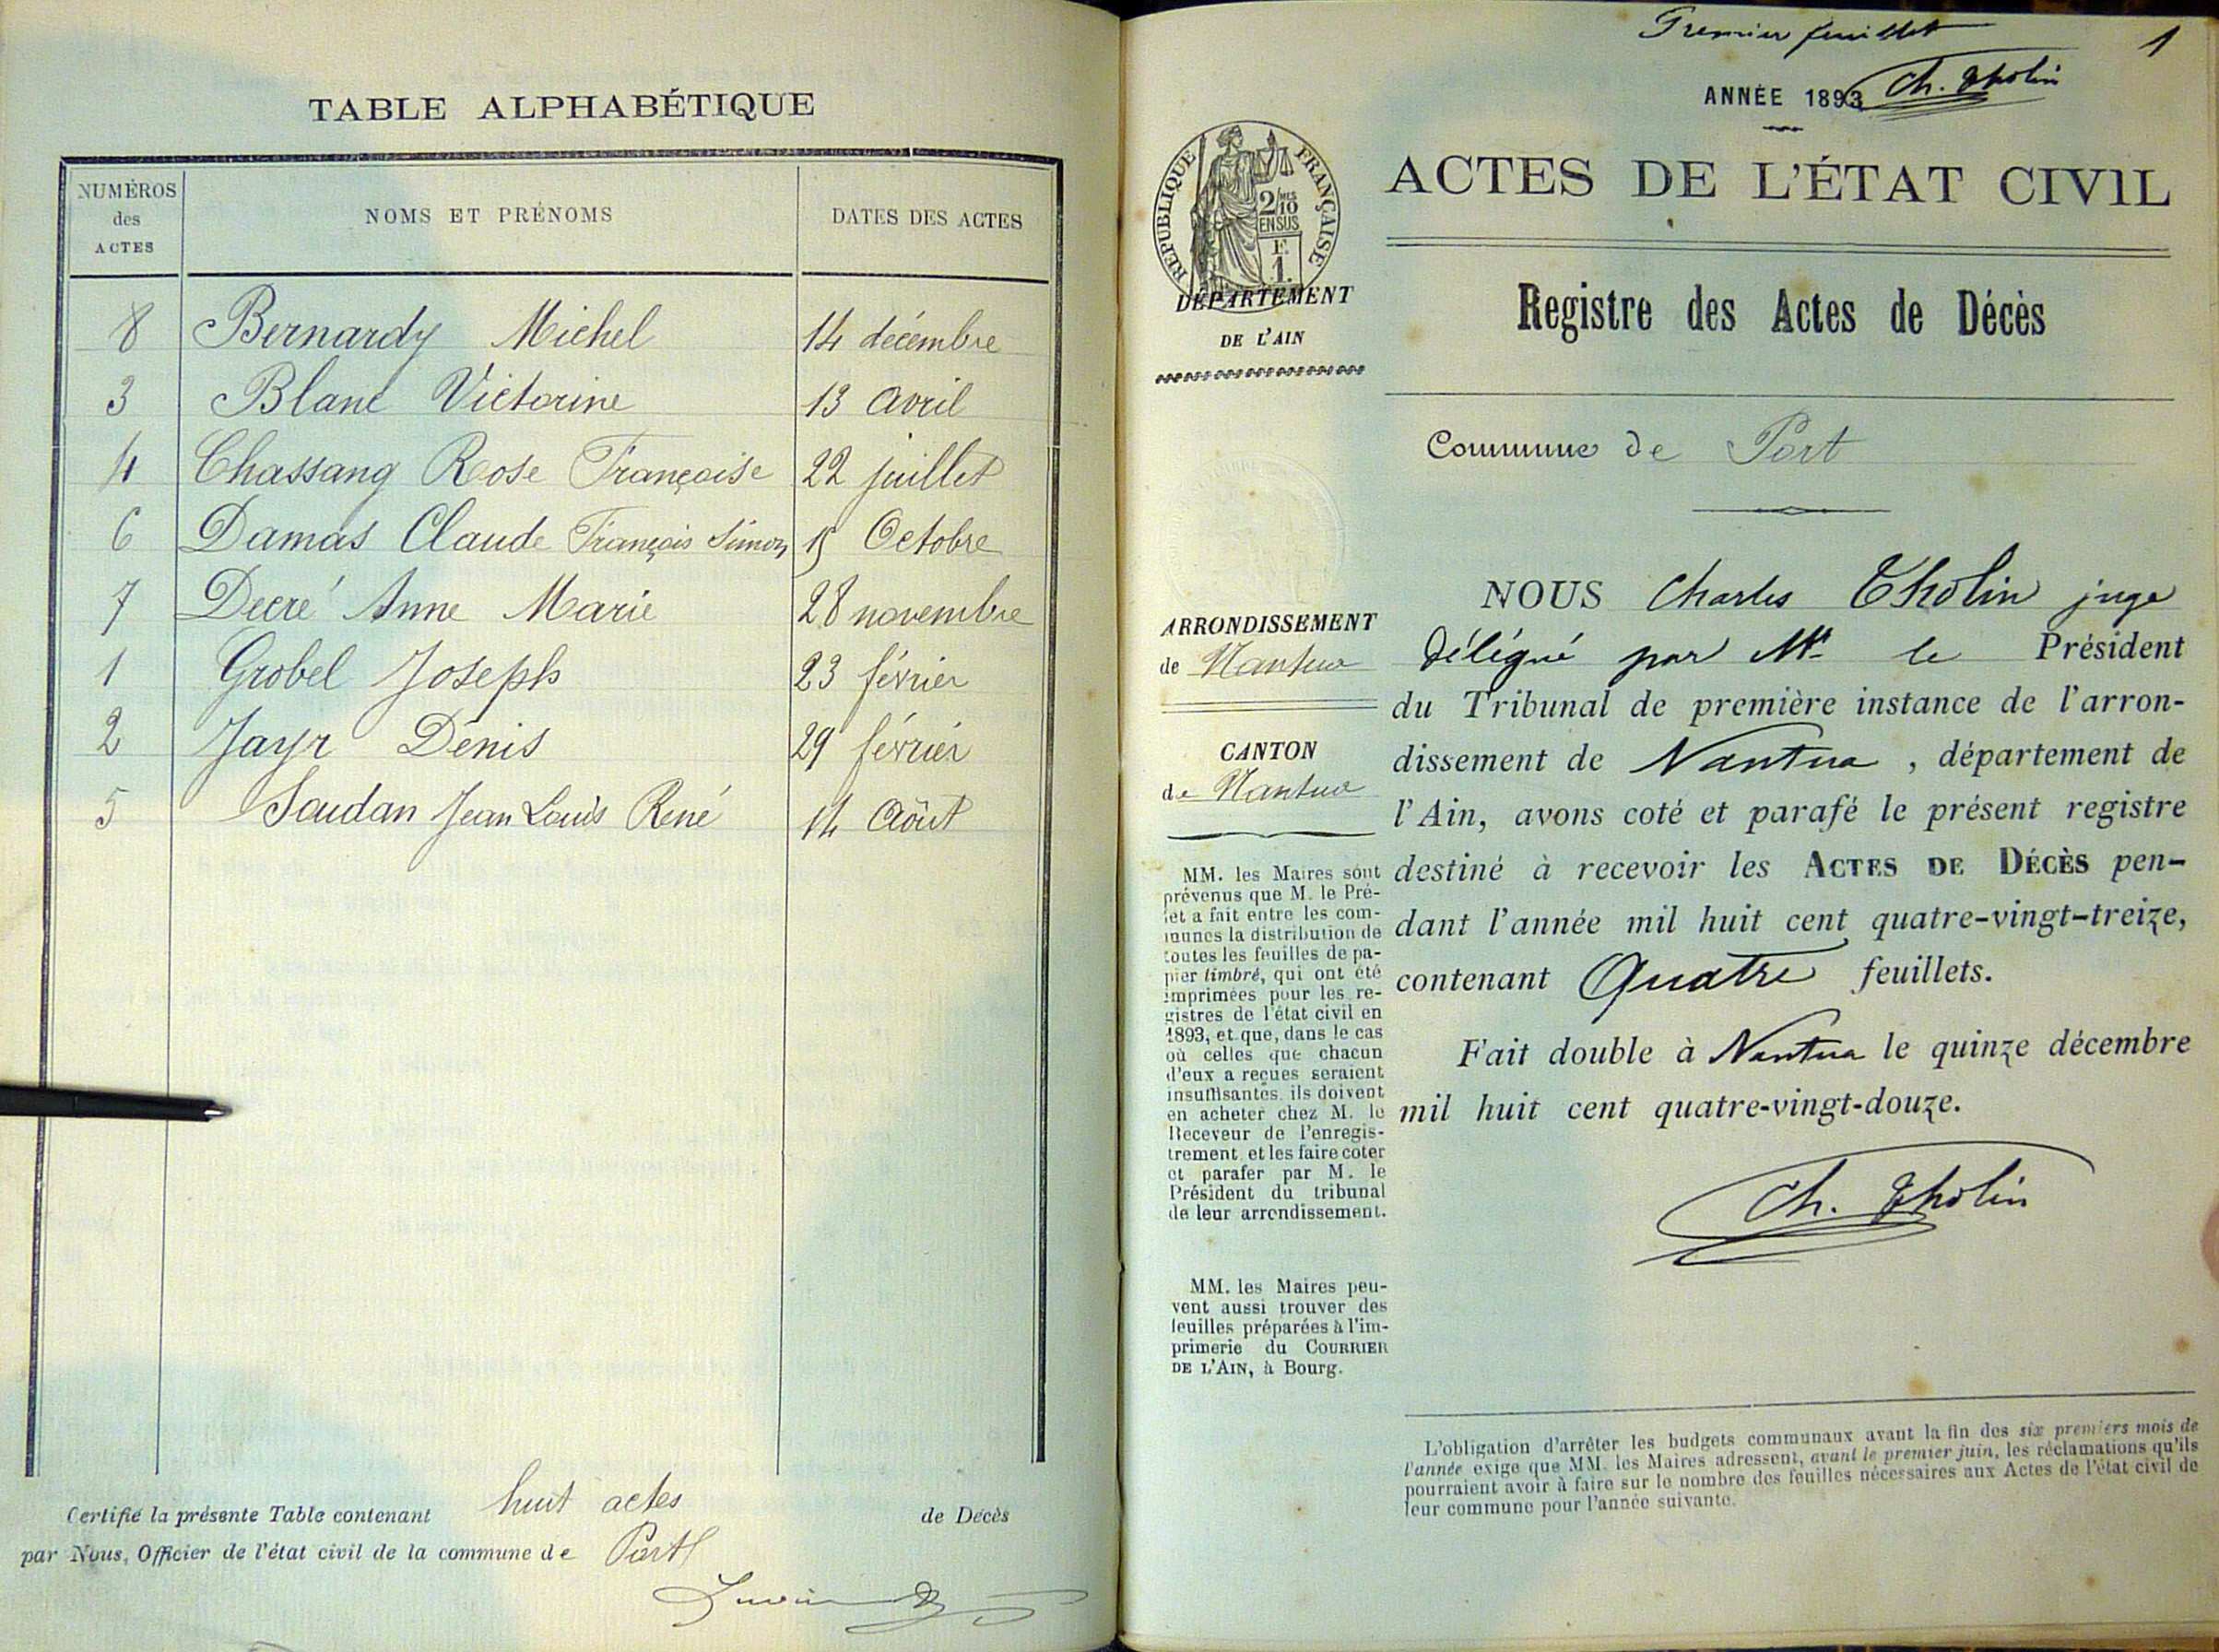 TABLE ALPHABÉTIQUE
NUMÉROS
des
ACTES
NOMS ET PRÉNOMS
DATES DES ACTES
8 Bernardy Michel 14 décembre
3 Blanc Victorine 13 avril
4 Chassang Rose Françoise 22 juillet
6 Damas Claude François Simon 15 Octobre
7 Decré Anne Marie 28 novembre
1 Grobel Joseph 23 février
2 Jayr Denis 29 février
5 Soudan Jean Louis René 14 Août
Certifié la présente Table contenant huit actes de Décès
par Nous, Officier de l'état civil de la commune de Port
Premier feuillet
1
ANNÉE 1893 Ch. Tholin
RÉPUBLIQUE FRANÇAISE
2/10 MES
EN SUS
F.
1.
DÉPARTEMENT
DE L'AIN
ACTES DE L'ÉTAT CIVIL
Registre des Actes de Décès
Commune de Port
ARRONDISSEMENT
de Nantua
CANTON
de Nantua
MM. les Maires sont
prévenus que M. le Pré-
fet a fait entre les com-
munes la distribution de
toutes les feuilles de pa-
pier timbré, qui ont été
imprimées pour les re-
gistres de l'état civil en
1893, et que, dans le cas
où celles que chacun
d'eux a reçues seraient
insuffisantes, ils doivent
en acheter chez M. le
Receveur de l'enregis-
trement et les faire coter
et parafer par M. le
Président du tribunal
de leur arrondissement.
MM. les Maires peu-
vent aussi trouver des
feuilles préparées à l'im-
primerie du COURRIER
DE L'AIN, à Bourg.
NOUS Charles Tholin juge
délégué par Mr le Président
du Tribunal de première instance de l'arron-
dissement de Nantua, département de
l'Ain, avons coté et parafé le présent registre
destiné à recevoir les ACTES DE DÉCÈS pen-
dant l'année mil huit cent quatre-vingt-treize,
contenant Quatre feuillets.
Fait double à Nantua le quinze décembre
mil huit cent quatre-vingt-douze.
Ch. Tholin
L'obligation d'arrêter les budgets communaux avant la fin des six premiers mois de
l'année exige que MM. les Maires adressent, avant le premier juin, les réclamations qu'ils
pourraient avoir à faire sur le nombre des feuilles nécessaires aux Actes de l'état civil de
leur commune pour l'année suivante.